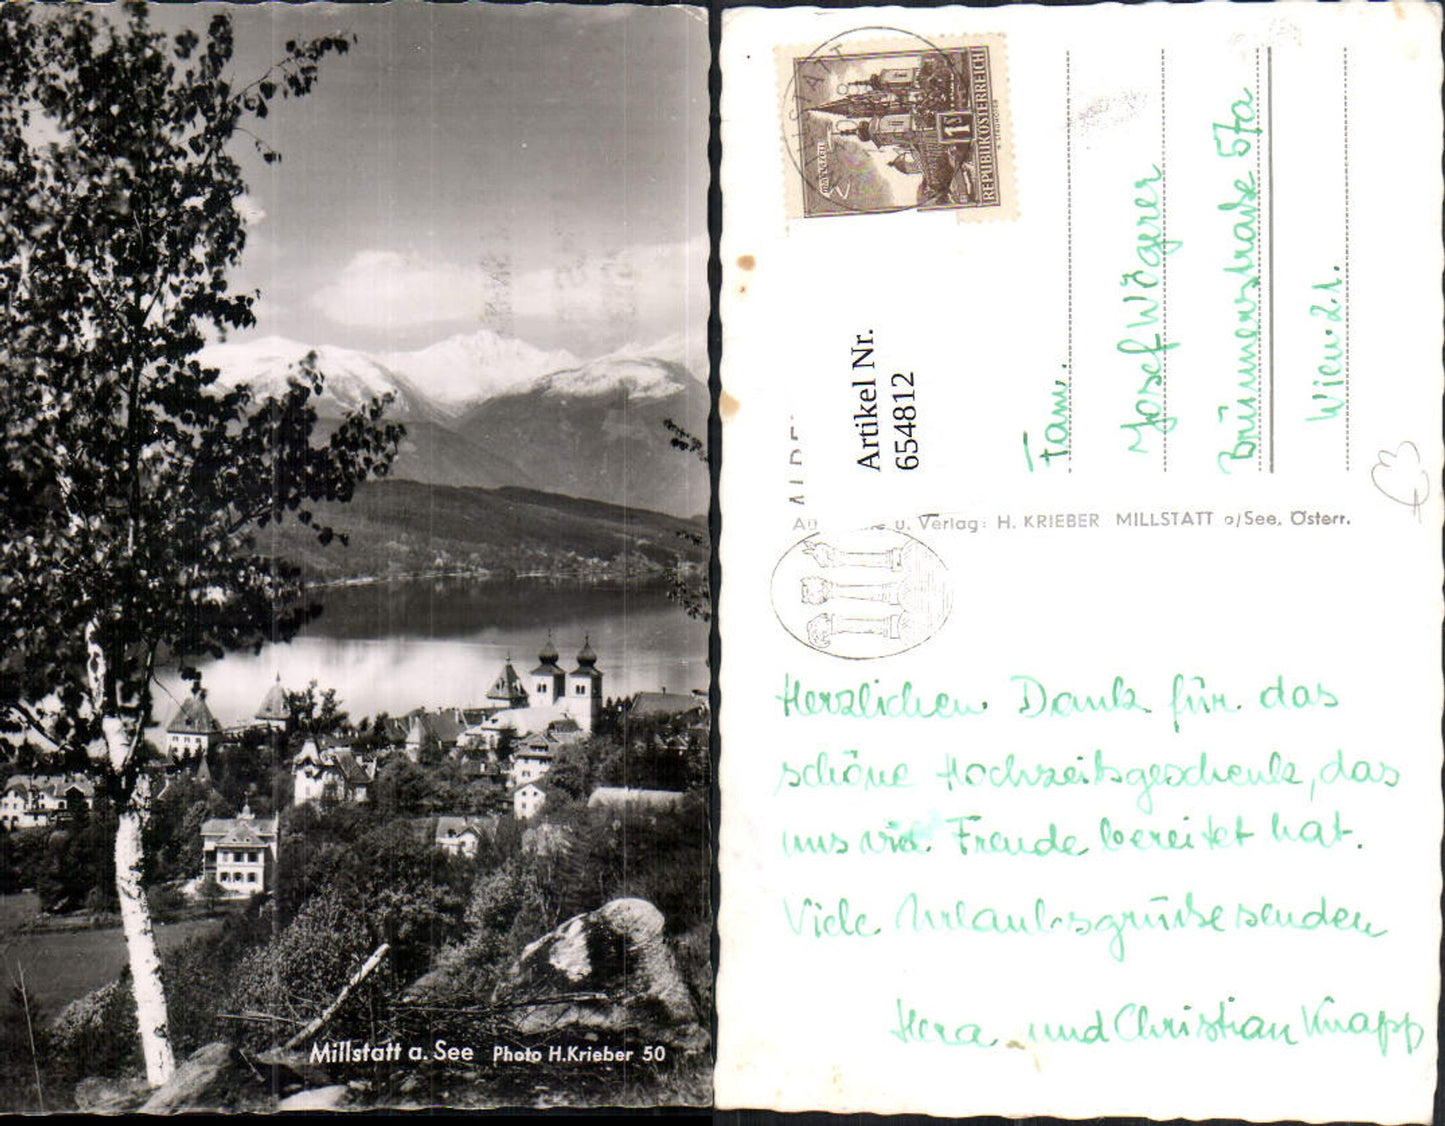 Millstatt a. See Photo H.Krieber 50
REPUBLIK ÖSTERREICH
1 S
Artikel Nr.
654812
Fam.
Josef Wögerer
Brünnerstraße 57a
Wien 21.
u. Verlag: H. KRIEBER MILLSTATT a/See, Österr.
Herzlichen Dank für das
schöne Hochzeitsgeschenk, das
uns viel Freude bereitet hat.
Viele Urlaubsgrüße senden
Hera und Christian Knapp